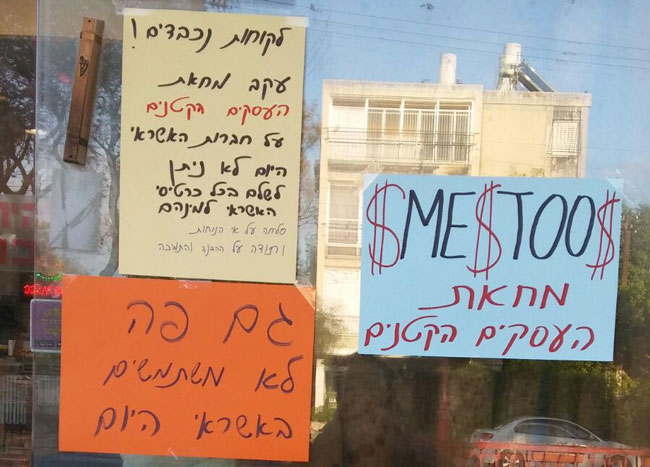 לקוחות נכבדים!
עקב מחאת
העסקים הקטנים
על חברות האשראי
היום לא ניתן
לשלם בכל כרטיסי
האשראי למינהם
סליחה על אי הנוחות
ותודה על ההבנה והתמיכה
גם פה
לא משתמשים
באשראי היום
$ME$TOO$
מחאת
העסקים הקטנים